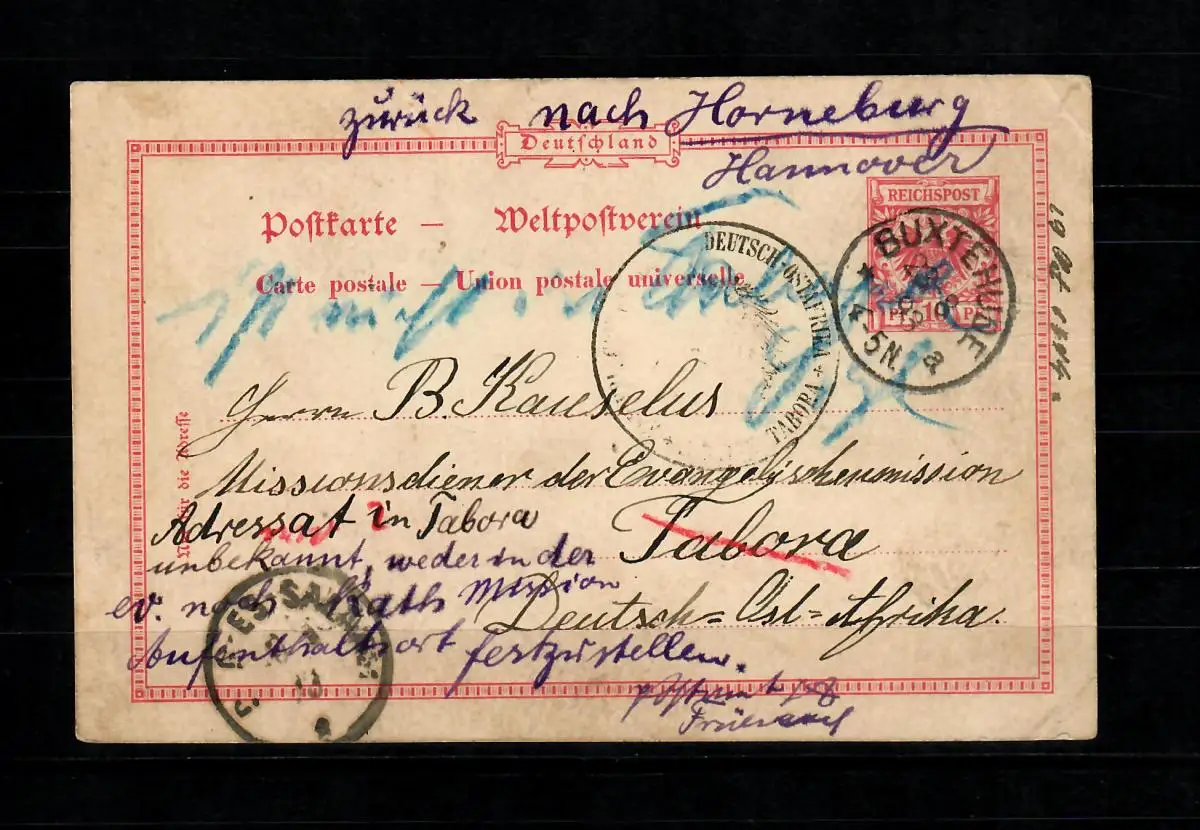 zurück nach Horneburg
Hannover
Deutschland
REICHSPOST
Postkarte — Weltpostverein
Carte postale — Union postale universelle
DEUTSCH-OSTAFRIKA * TABORA *
BUXTEHUDE
4-5N.
a
PF 10 PF
Ist nicht in
Herrn B. Kauselus
Missionsdiener der Evangelischenmission
Tabora
Deutsch=Ost=Afrika.
Nur für die Adresse
Adressat in Tabora
unbekannt, weder in der
ev. noch kath Mission
Aufenthaltsort festzustellen.
DAR-ES-SALAAM